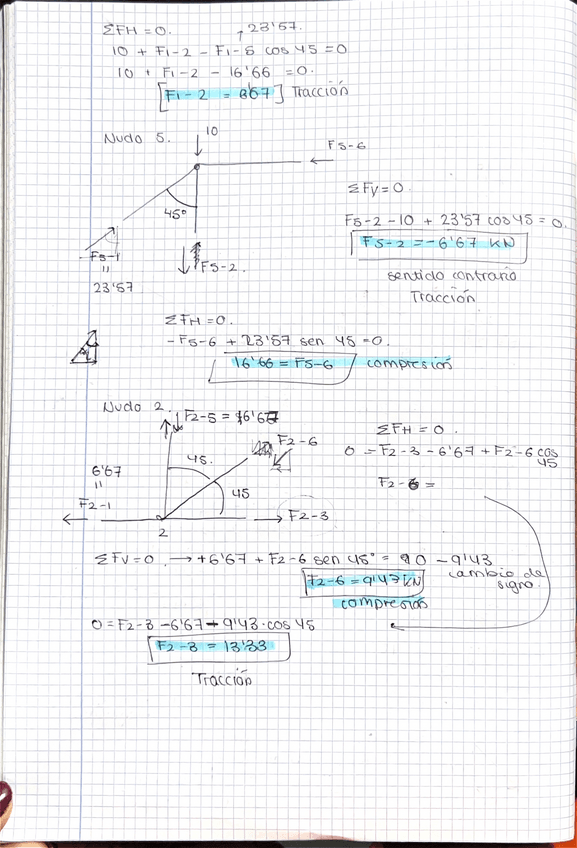 ΣFH = 0. ↑ 23'57.
10 + F1-2 - F1-5 cos 45 = 0
10 + F1-2 - 16'66 = 0.
[F1-2 = 6'67] Tracción
Nudo 5. 10
F5-6
45°
F5-1
=
23'57
F5-2.
ΣFV = 0
F5-2 - 10 + 23'57 cos 45 = 0.
F5-2 = -6'67 KN
sentido contrario
Tracción
ΣFH = 0.
-F5-6 + 23'57 sen 45 = 0.
16'66 = F5-6 compresión
Nudo 2.
F2-5 = 6'67
F2-6
45.
45
6'67
=
F2-1
F2-3
2
ΣFH = 0.
0 = F2-3 - 6'67 + F2-6 cos 45
F2-6 =
ΣFV = 0 → +6'67 + F2-6 sen 45° = 0 -9'43
cambio de signo.
F2-6 = 9'43 KN
compresión
0 = F2-3 - 6'67 - 9'43 · cos 45
F2-3 = 13'33
Tracción